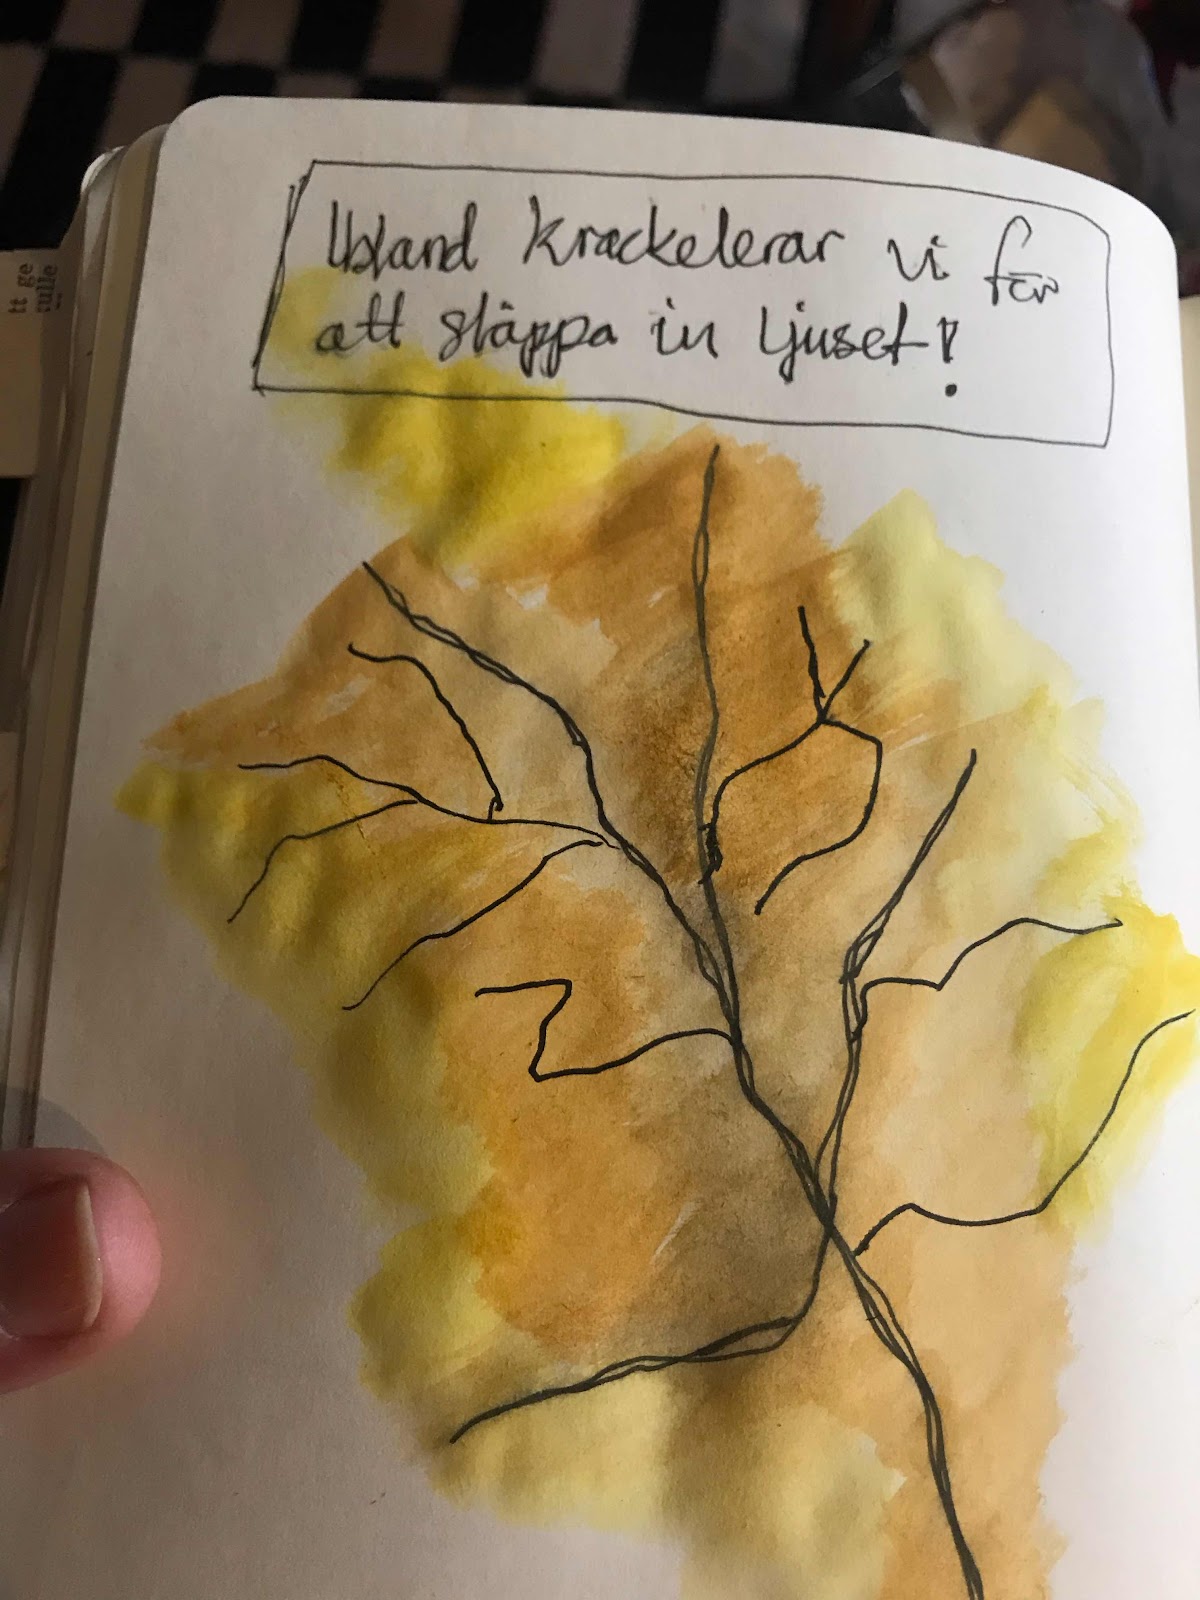 Ibland krackelerar vi för
att släppa in ljuset!
tt ge
tulle